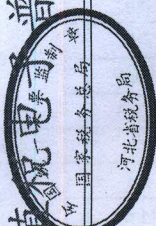 电子普
全国统一发票监制章
国家税务总局
河北省税务局